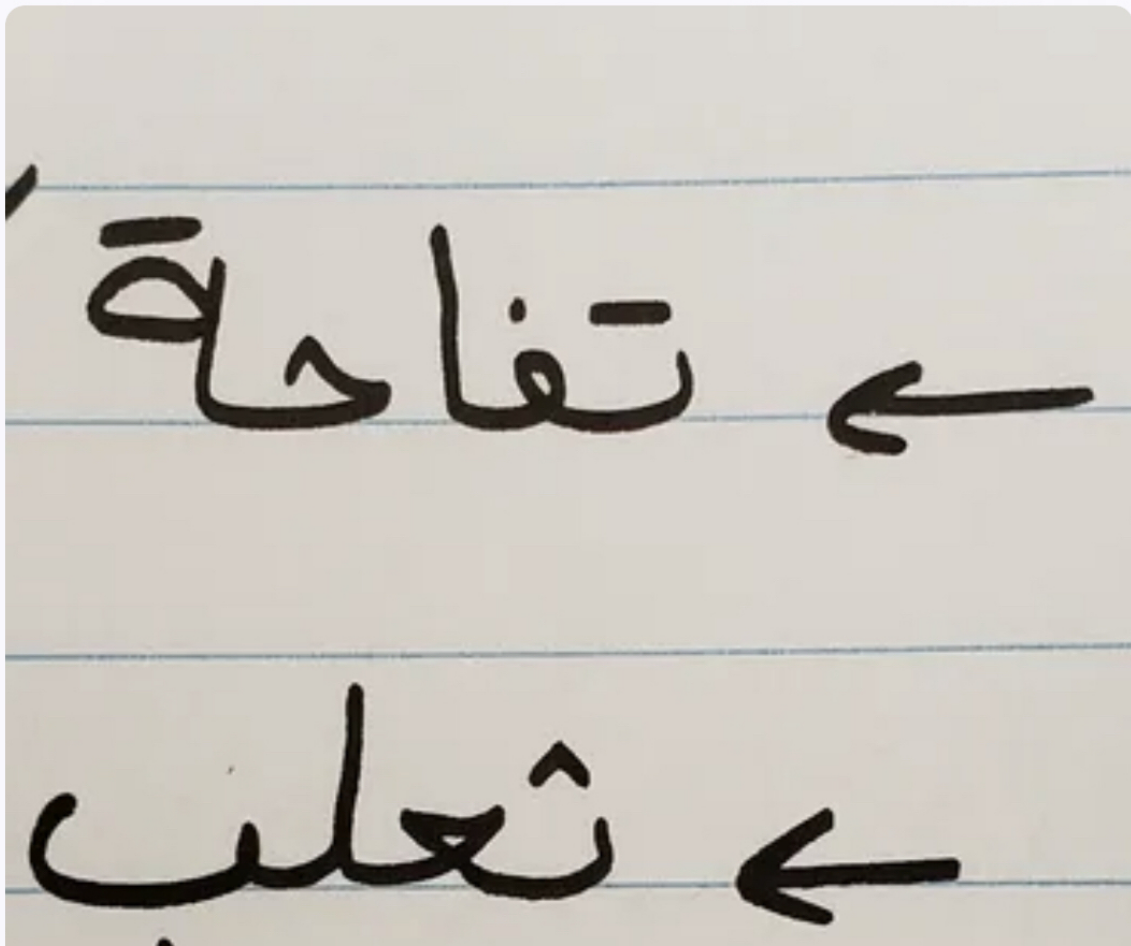 ← تفاحة
← ثعلب